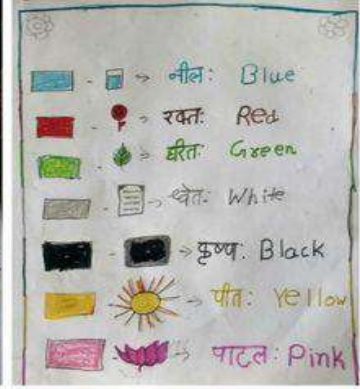 नील: Blue
रक्त: Red
हरित: Green
श्वेत: White
कृष्ण: Black
पीत: Yellow
पाटल: Pink